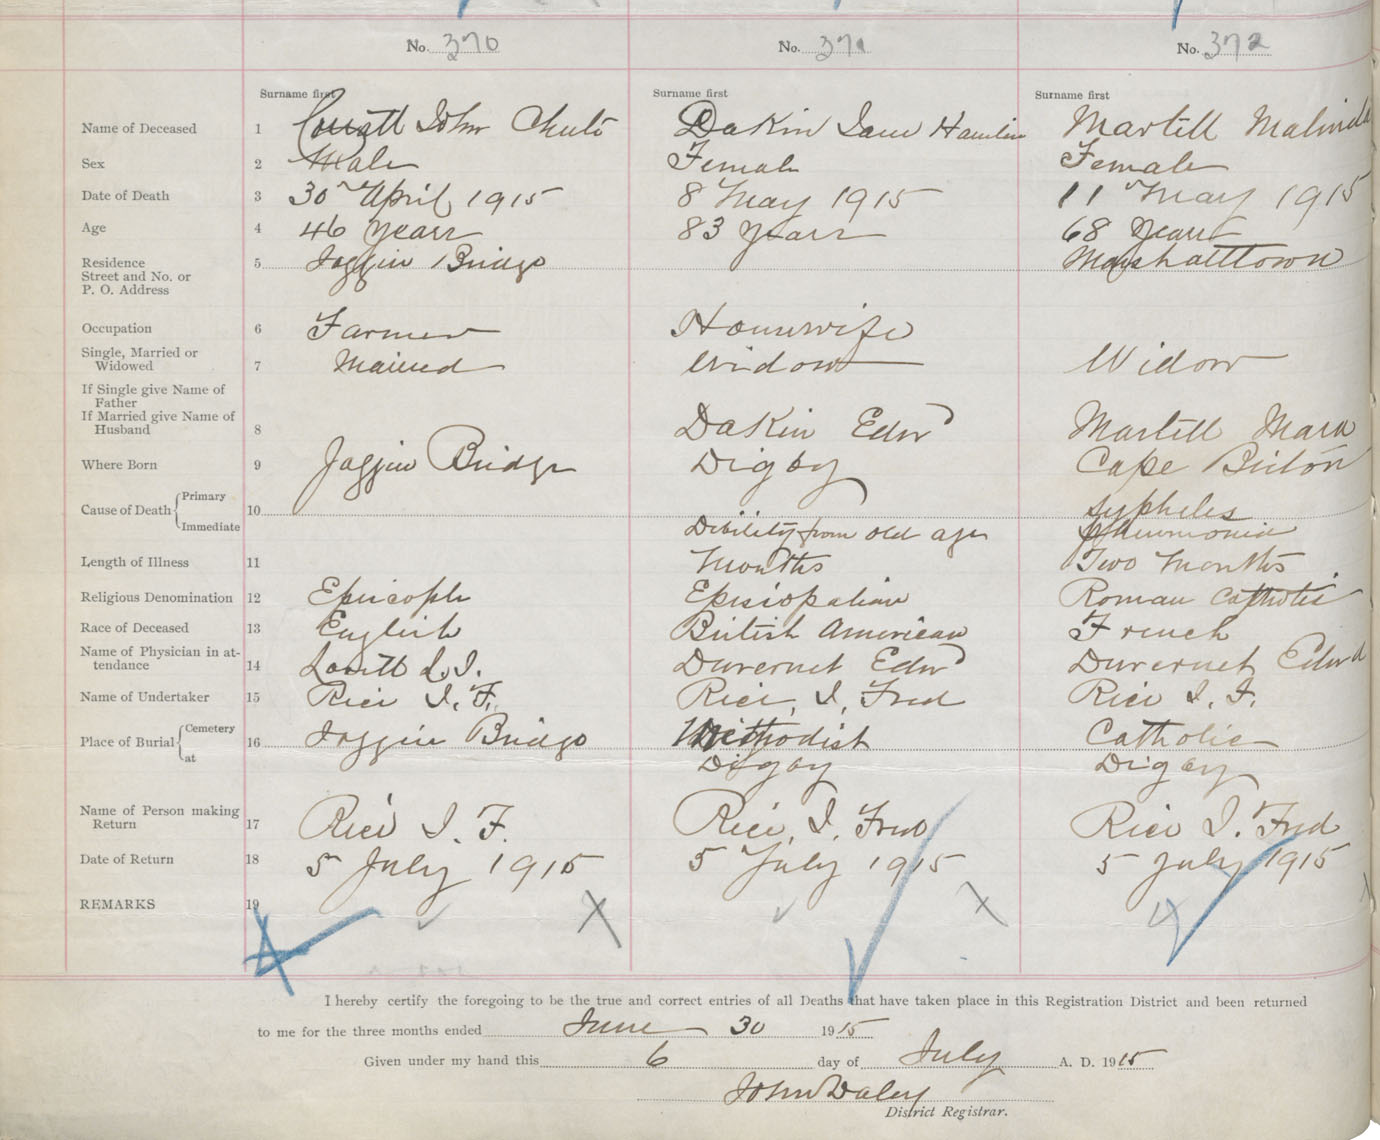 No. 370 No. 371 No. 372
Surname first Surname first Surname first
Name of Deceased 1 John Chute Dakin Jane Hamlin Martell Malinda
Sex 2 Male Female Female
Date of Death 3 30 April 1915 8 May 1915 11 May 1915
Age 4 46 Years 83 Years 68 Years
Residence 5 Joggin Bridge Marshalltown
Street and No. or
P. O. Address
Occupation 6 Farmer Housewife
Single, Married or
Widowed 7 Married Widow Widow
If Single give Name of
Father
If Married give Name of
Husband 8 Dakin Edwd Martell Mark
Where Born 9 Joggin Bridge Digby Cape Briton
Cause of Death { Primary 10 sypheles
Immediate Dibility from old age Pneumonia
Length of Illness 11 Months Two Months
Religious Denomination 12 Episcople Episiopalian Roman Catholic
Race of Deceased 13 English British American French
Name of Physician in at-
tendance 14 Lovitt L. I. Duvernet Edwd Duvernet Edwd
Name of Undertaker 15 Rice I. F. Rice, I, Fred Rice I. F.
Place of Burial { Cemetery 16 Joggin Bridge Methodist Catholic
at Digby Digby
Name of Person making
Return 17 Rice I. F. Rice, I, Fred Rice I. Fred
Date of Return 18 5 July 1915 5 July 1915 5 July 1915
REMARKS 19
I hereby certify the foregoing to be the true and correct entries of all Deaths that have taken place in this Registration District and been returned
to me for the three months ended June 30 1915
Given under my hand this 6 day of July A. D. 1915
John Daley
District Registrar.